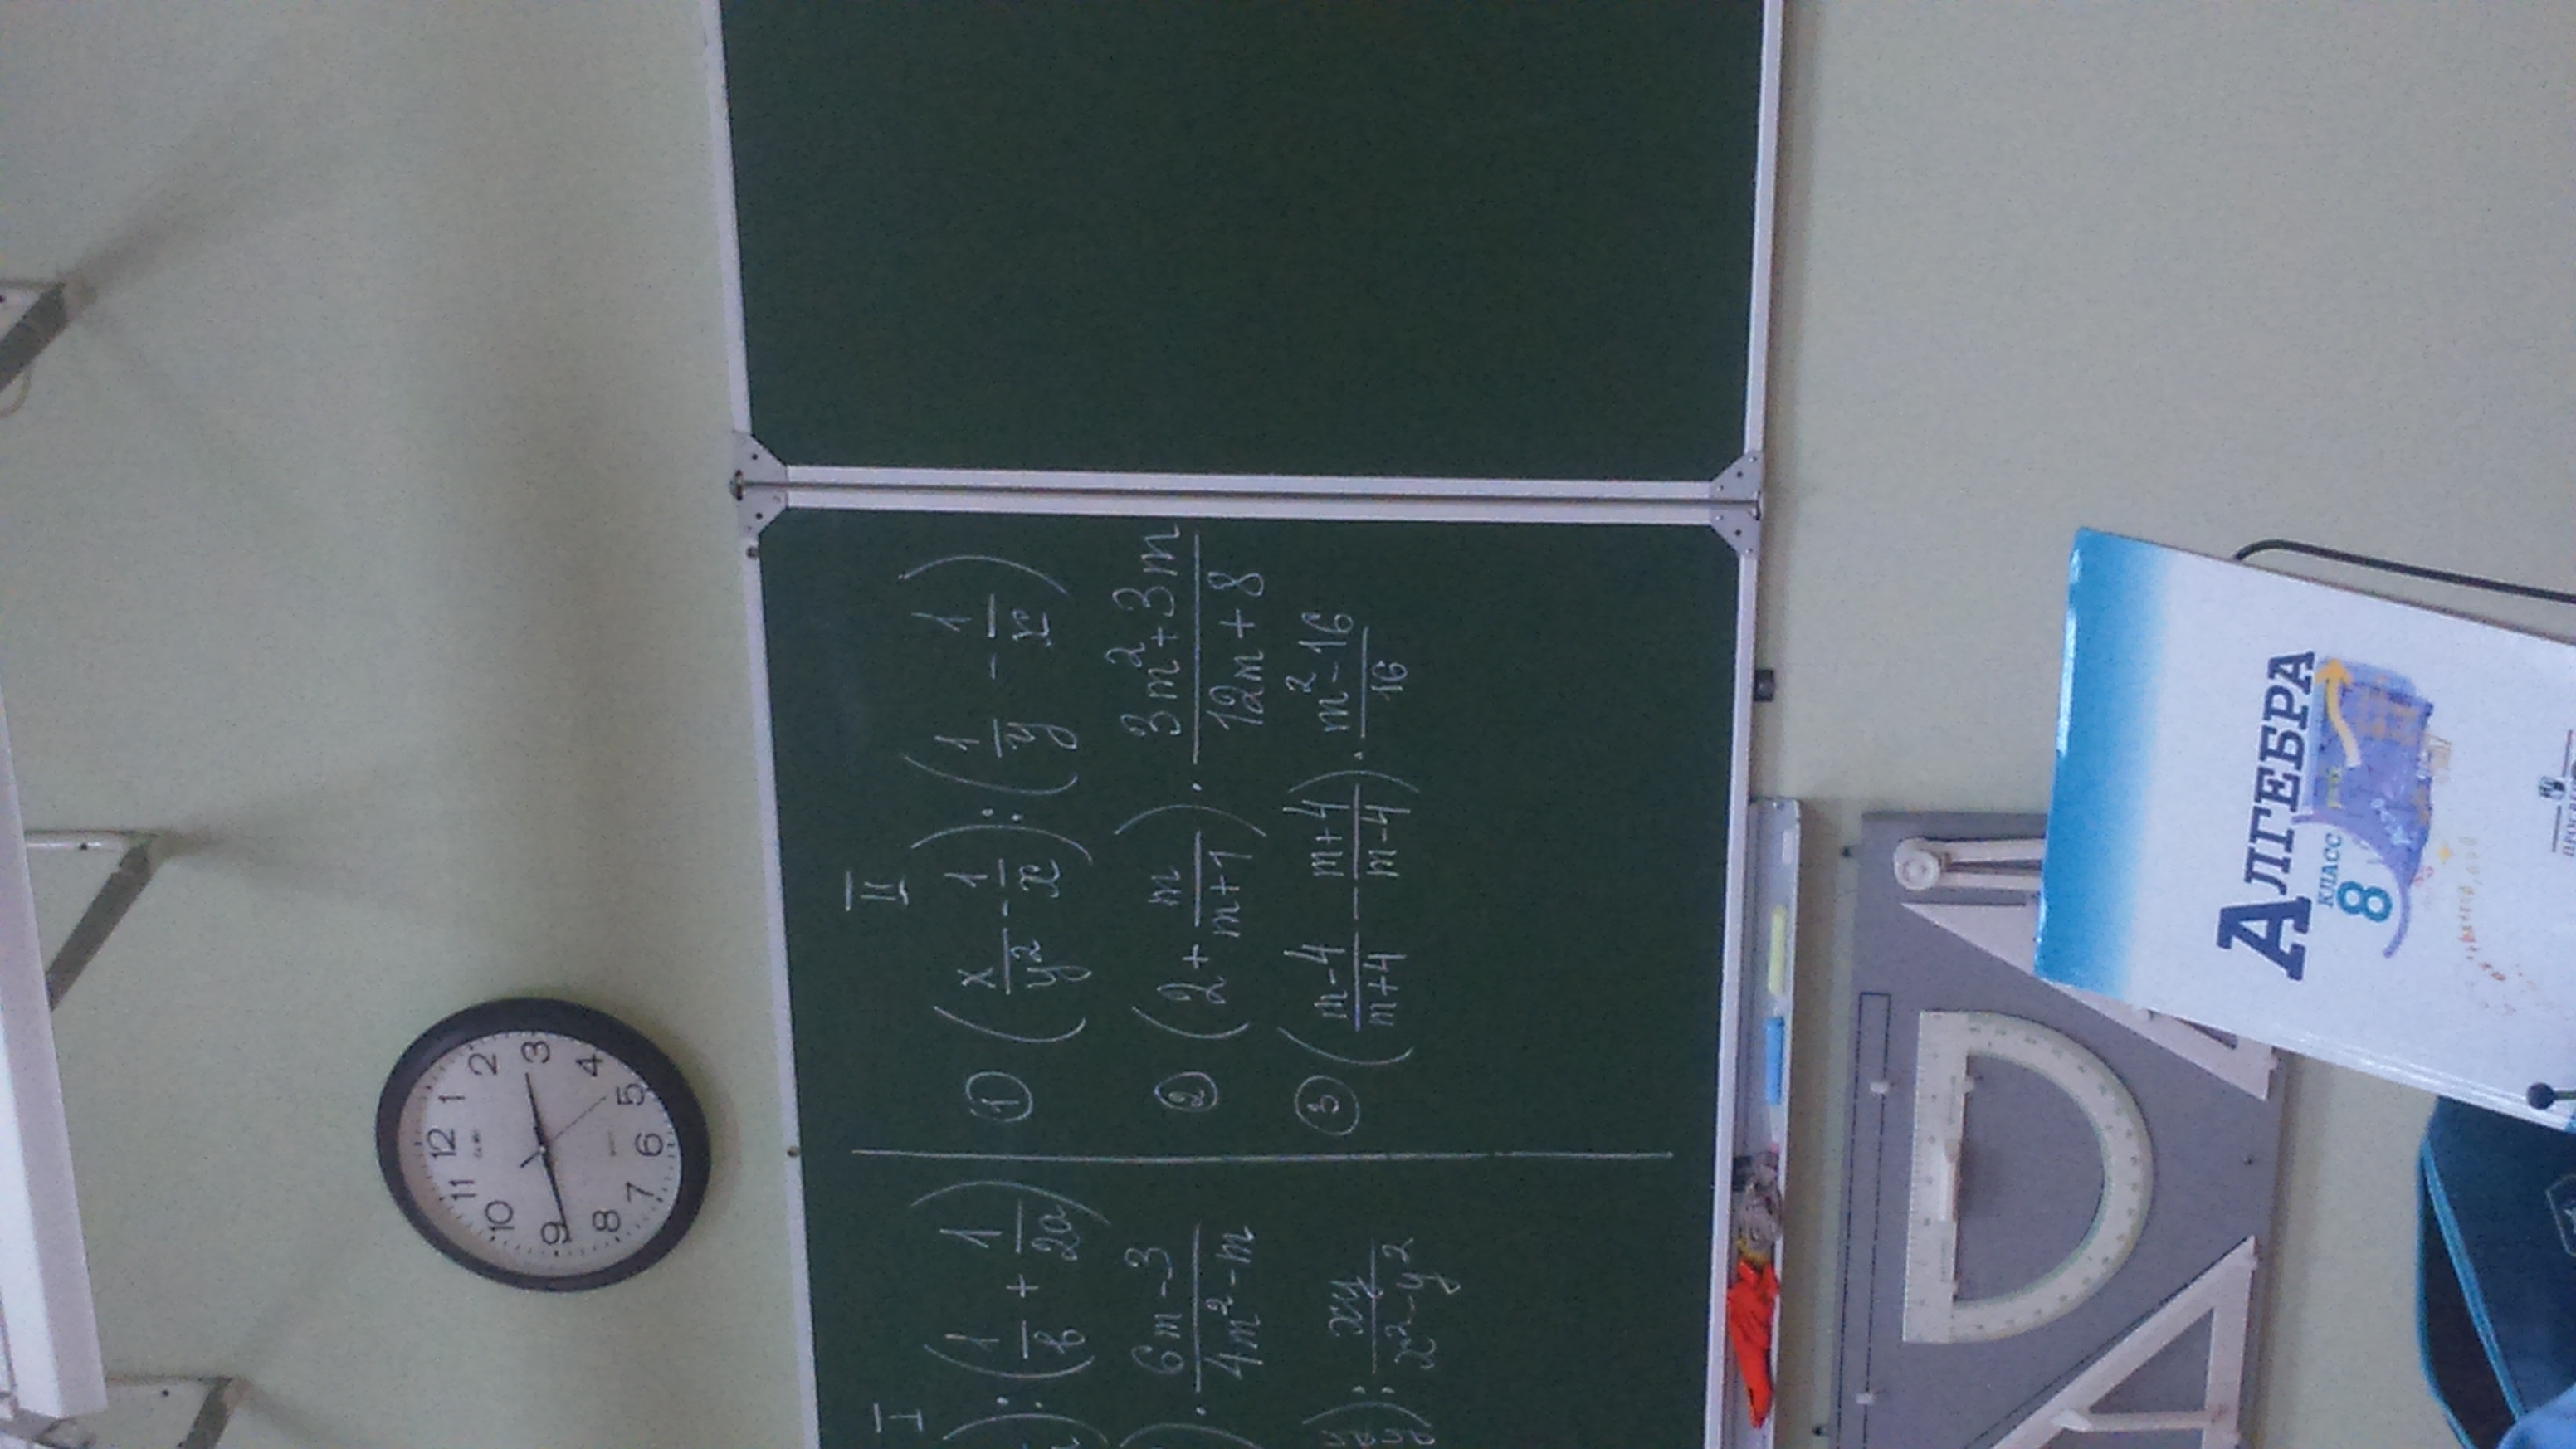 I
: (1/в + 1/2a)
· (6m-3)/(4m²-m)
: xy/(x²-y²)
II
① (x/y² - 1/x) : (1/y - 1/x)
② (2 + m/(m+1)) · (3m²+3m)/(12m+8)
③ ((m-4)/(m+4) - (m+4)/(m-4)) · (m²-16)/16
12
1
2
3
4
5
6
7
8
9
10
11
АЛГЕБРА
КЛАСС
8